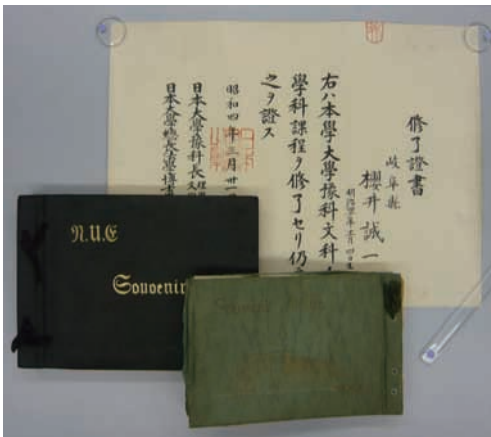 修了證書
岐阜縣
櫻井誠一
右ハ本學大學豫科文科
學科課程ヲ修了セリ仍
之ヲ證ス
昭和四年三月卅一
日本大學豫科長
日本大學總長法學博士
N.U.E
Souvenir